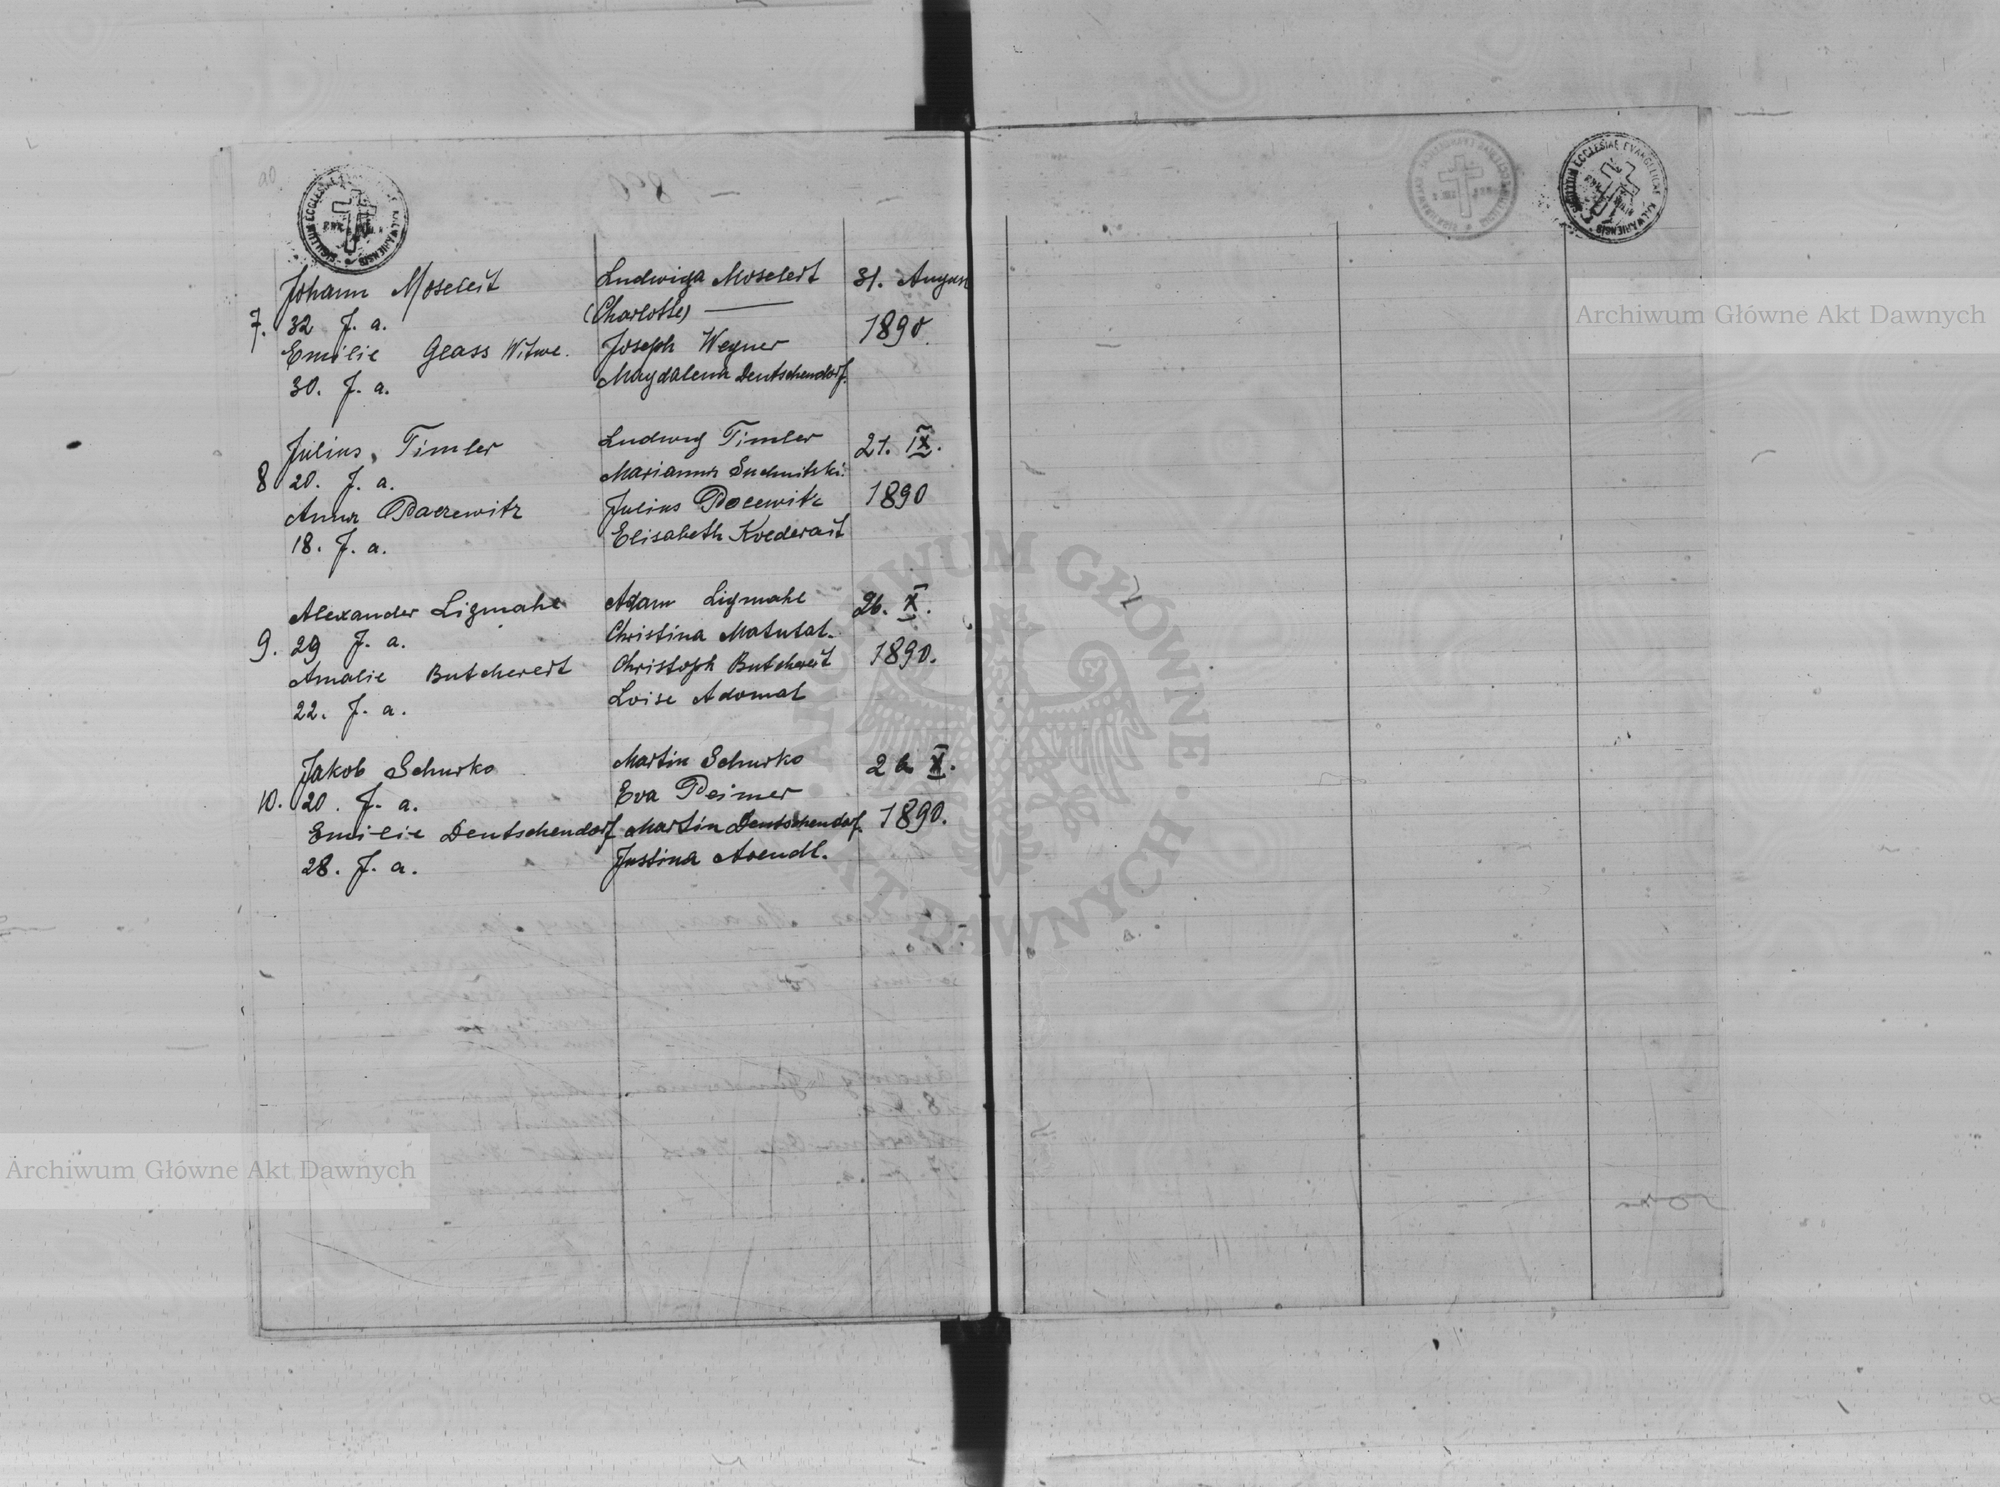 Johann Moseleit
32 J. a.
7.
Emilie Glass Witwe.
30. J. a.
Ludwiga Moseleit
(Charlotte) —
Joseph Wegner
Magdalena Deutschendorf.
31. August
1890.
Julius Timler
8 20. J. a.
Anna Paczewitz
18. J. a.
Ludwig Timler
Marianna Suchnitzki.
Julius
Elisabeth Krederait
21. IX.
1890
Alexander Ligmahl
9. 29 J. a.
Amalie Butchereit
22. J. a.
Adam Ligmahl
Christina Matutat.
Christoph Butchereit
Loise Adomat
26. X.
1890.
Jakob Schurko
10. 20. J. a.
Emilie Deutschendorf
28. J. a.
Martin Schurko
Eva Reimer
Martin Deutschendorf.
Justina Arendt.
26 X.
1890.
SIGILLUM ECCLESIAE EVANGELICAE KALWARIENSIS
Archiwum Główne Akt Dawnych
Archiwum Główne Akt Dawnych
ARCHIWUM GŁÓWNE AKT DAWNYCH